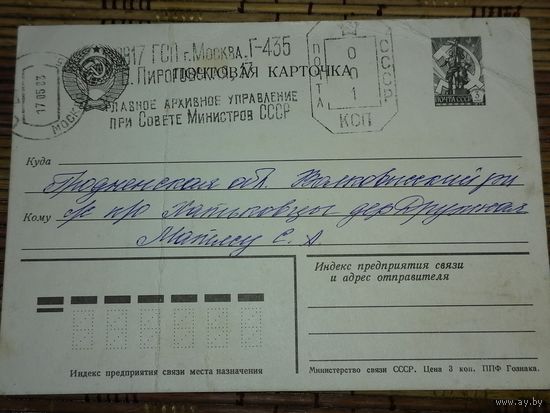 117 ГСП г. Москва. Г-435
Пироговская, 17
ГЛАВНОЕ АРХИВНОЕ УПРАВЛЕНИЕ
ПРИ СОВЕТЕ МИНИСТРОВ СССР
17.05.83
МОСК
ПОЧТА
001
СССР
КСП
ПОЧТОВАЯ КАРТОЧКА
ПОЧТА СССР 3
Куда
Гродненская обл. Волковысский р-н
Кому
п/о Хатьковцы дер Дружная
Матясу С. А
Индекс предприятия связи
и адрес отправителя
Индекс предприятия связи места назначения
Министерство связи СССР. Цена 3 коп. ППФ Гознака.
www.ay.by